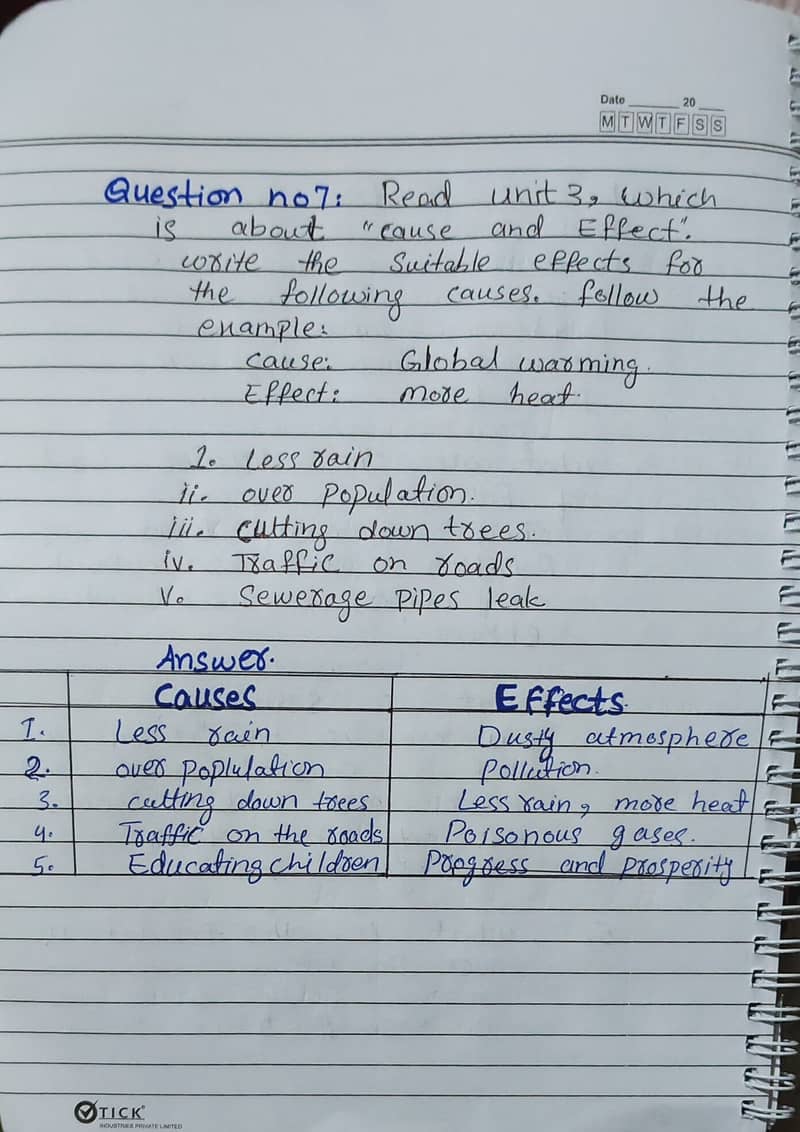 Date ______ 20 ___
M T W T F S S
Question no 7: Read unit 3, which
is about "cause and Effect".
write the Suitable effects for
the following causes. follow the
enample:
Cause: Global warming.
Effect: more heat.
1. Less rain
ii. over population.
iii. cutting down trees.
iv. Traffic on roads
V. Sewerage pipes leak
Answer.
Causes Effects.
1. Less rain Dusty atmosphere
2. over poplulation pollution.
3. cutting down trees Less rain, more heat
4. Traffic on the roads Poisonous gases.
5. Educating children Progress and prosperity
TICK
INDUSTRIES PRIVATE LIMITED